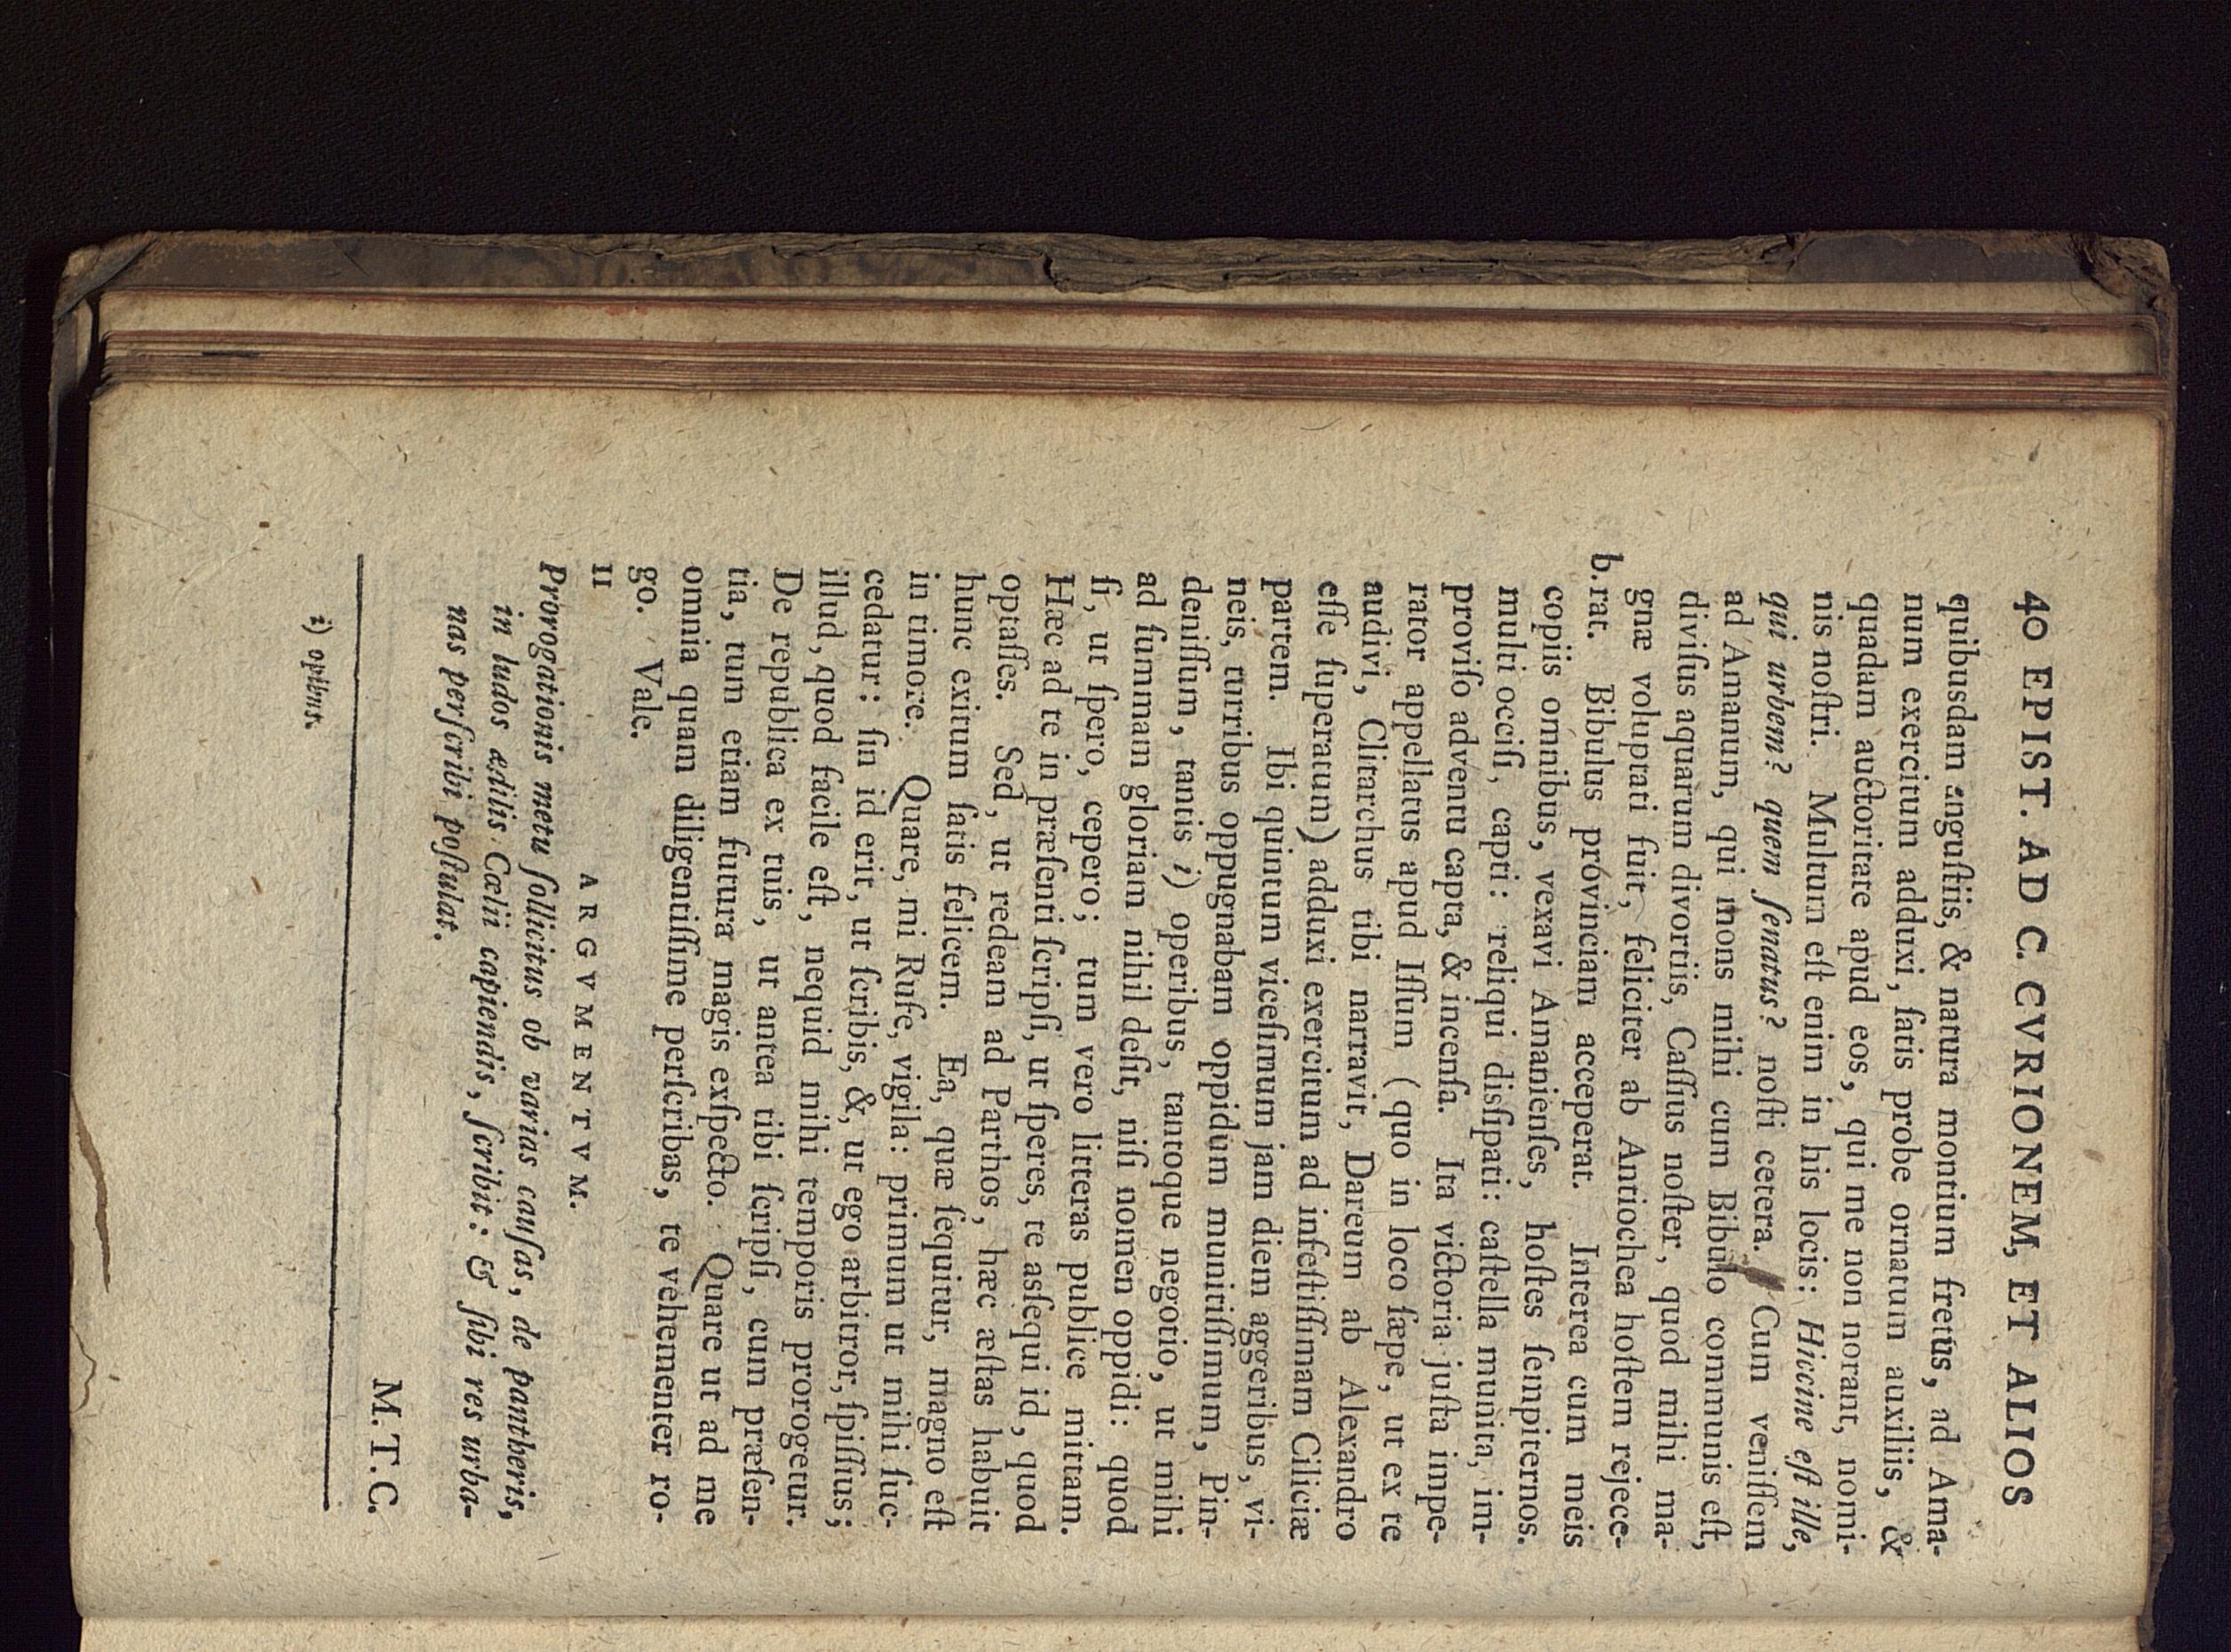 40 EPIST. AD C. CVRIONEM, ET ALIOS
quibusdam anguſtiis, & natura montium fretus, ad Ama-
num exercitum adduxi, ſatis probe ornatum auxiliis, &
quadam auctoritate apud eos, qui me non norant, nomi-
nis noſtri. Multum eſt enim in his locis: Hiccine eſt ille,
qui urbem? quem ſenatus? noſti cetera. Cum veniſſem
ad Amanum, qui mons mihi cum Bibulo communis eſt,
diviſus aquarum divortiis, Caſſius noſter, quod mihi ma-
gnæ voluptati fuit, feliciter ab Antiochea hoſtem rejece-
b. rat. Bibulus provinciam acceperat. Interea cum meis
copiis omnibus, vexavi Amanienſes, hoſtes ſempiternos.
multi occiſi, capti: reliqui disſipati: caſtella munita, im-
proviſo adventu capta, & incenſa. Ita victoria juſta impe-
rator appellatus apud Iſſum (quo in loco ſæpe, ut ex te
audivi, Clitarchus tibi narravit, Dareum ab Alexandro
eſſe ſuperatum) adduxi exercitum ad infeſtiſſimam Ciliciæ
partem. Ibi quintum viceſimum jam diem aggeribus, vi-
neis, turribus oppugnabam oppidum munitiſſimum, Pin-
deniſſum, tantis i) operibus, tantoque negotio, ut mihi
ad ſummam gloriam nihil deſit, niſi nomen oppidi: quod
ſi, ut ſpero, cepero; tum vero litteras publice mittam.
Hæc ad te in præſenti ſcripſi, ut ſperes, te asſequi id, quod
optaſſes. Sed, ut redeam ad Parthos, hæc æſtas habuit
hunc exitum ſatis felicem. Ea, quæ ſequitur, magno eſt
in timore. Quare, mi Rufe, vigila: primum ut mihi ſuc-
cedatur: ſin id erit, ut ſcribis, &, ut ego arbitror, ſpiſſius;
illud, quod facile eſt, nequid mihi temporis prorogetur.
De republica ex tuis, ut antea tibi ſcripſi, cum præſen-
tia, tum etiam futura magis exſpecto. Quare ut ad me
omnia quam diligentiſſime perſcribas, te vehementer ro-
go. Vale.
II ARGVMENTVM.
Prorogationis metu ſollicitus ob varias cauſas, de pantheris,
in ludos ædilis Cælii capiendis, ſcribit: & ſibi res urba-
nas perſcribi poſtulat.
M. T. C.
i) opibus.